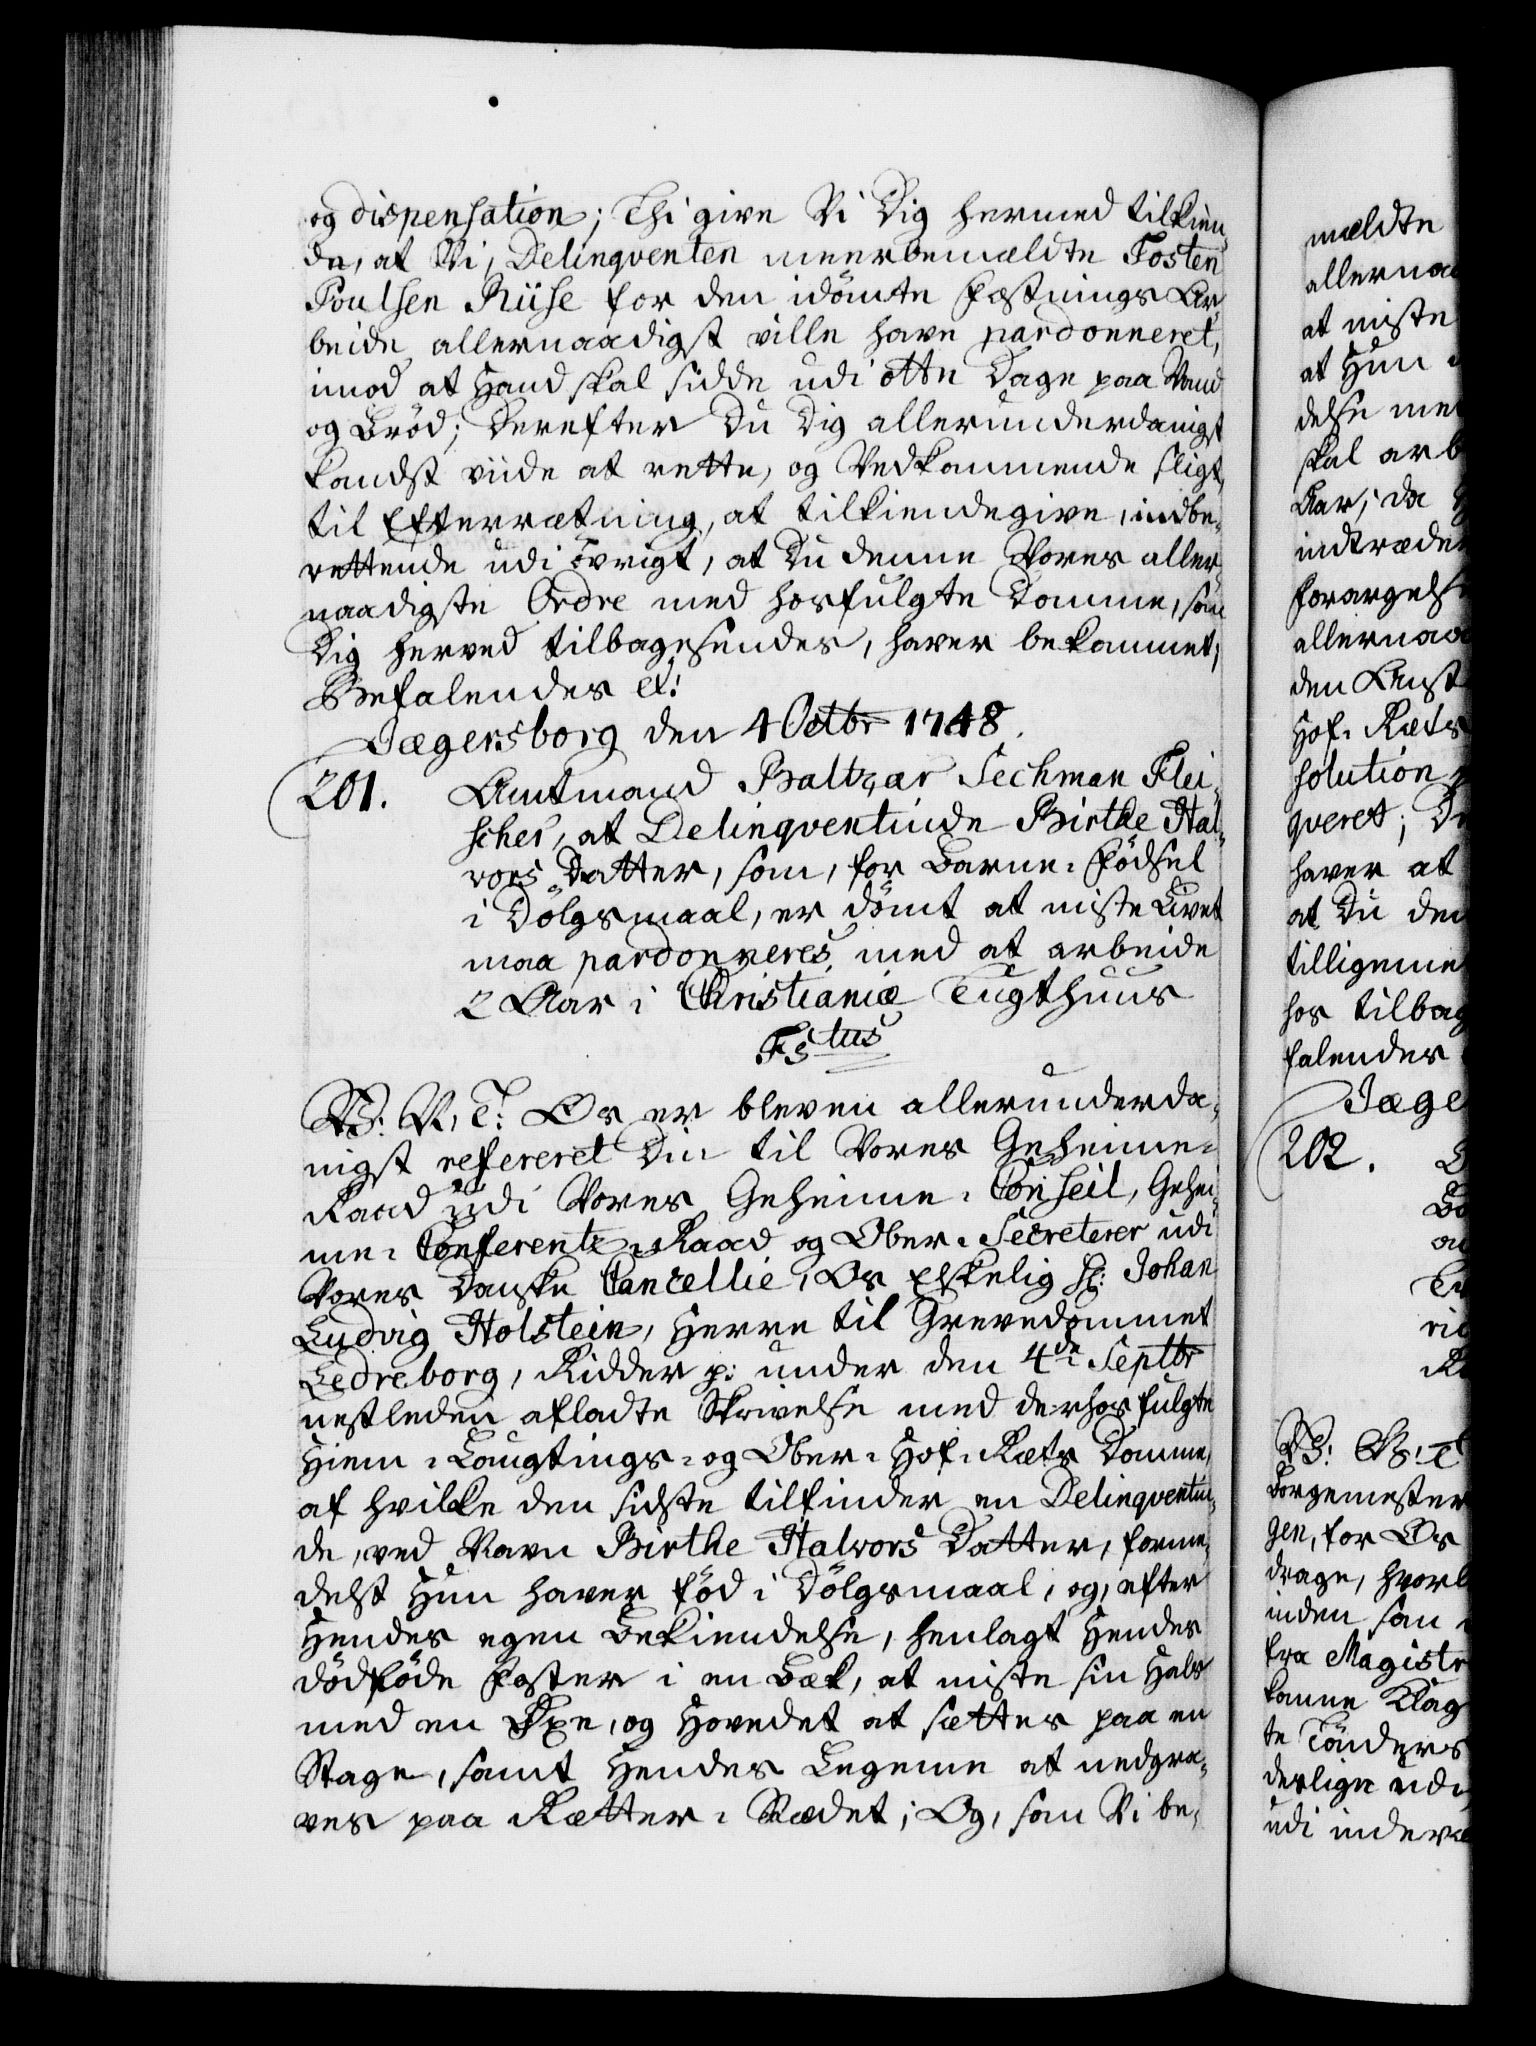 og dispensation; Thi give Vi Dig hermed tilkien¬
de, at Vi, Delinqventen meerbemældte Tosten
Poulsen Riise for den idömte Fæstnings Ar¬
beide allernaadigst ville have pardonneret,
imod at Hand skal sidde udi otte Dage paa Vand
og Bröd; Derefter Du Dig allerunderdanigst
kandst viide at rette, og Vedkommende sligt,
til Efterrætning, at tilkiendegive, indbe¬
rettende udi övrigt, at Du denne Vores aller¬
naadigste Ordre med hosfulgte Domme, som
Dig herved tilbagesendes, haver bekommet;
Befalendes et:
Jægersborg den 4 Octbr 1748.
201. Amtmand Baltzar Sechman Flei¬
scher, at Delinqventinde Birthe Hal¬
vors Datter, som, for Barne-Födsel
i Dölgsmaal, er dömt at miste Livet
maa pardonneres, med at arbeide
2 Aar i Christianiæ Tugthuus
Fs tus
V: V: T: Os er bleven allerunderda¬
nigst refereret Din til Vores Geheime-
Raad udi Vores Geheime-Conseil, Gehei¬
me-Conferentz-Raad og Ober-Secreterer udi
Vores Danske Cancellie, Os Elskelig Hr: Johan
Ludvig Holstein, Herre til Grevedommet
Ledreborg, Ridder p: under den 4de Septbr
nestleden afladte Skrivelse med derhosfulgte
Hiem-Laugtings- og Ober-Hof-Rets Domme,
af hvilke den sidste tilfinder en Delinqventin¬
de, ved Navn Birthe Halvors Datter, forme¬
delst Hun haver föd i Dölgsmaal, og, efter
Hendes egen Bekiendelse, henlagt Hendes
dödföde Foster i en Bæk, at miste sin Hals
med en Öxe, og Hovedet at sættes paa en
Stage, samt Hendes Legeme at nedgra¬
ves paa Rætter-Stædet; Og, som Vi be¬
mældte
allernaa
at miste
at Hun
delse me
skal arb
Aar; da
indtræde
Forargels
allernaa
den Anst
Hof-Rets
solution
qveret; De
haver at
at Du den
tilligeme
hos tilbag
falendes
Jæge
202.
V: V: T
Borgemester
gen, for Os
drage, hvorl
inden som
fra Magistr
komne Klag
te Tönders
derlige udi
udi inderæ